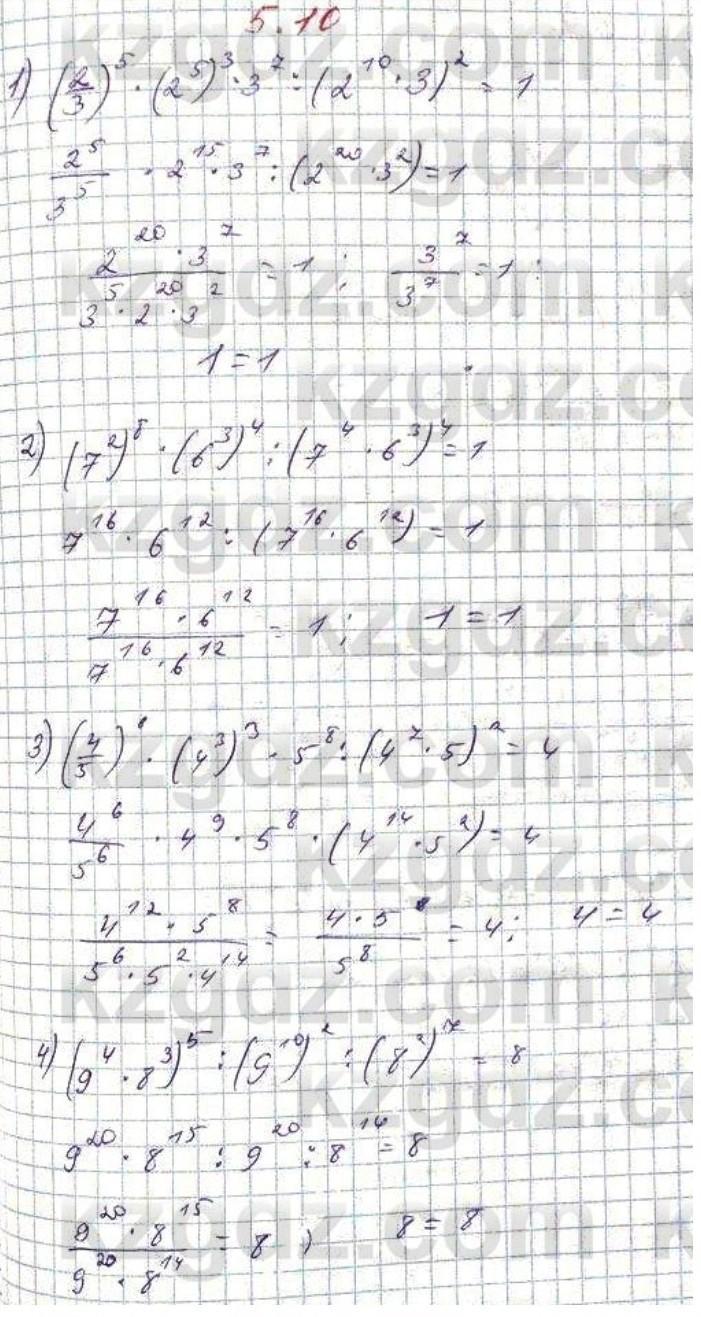 5.10
1) (2/3)^5 · (2^5)^3 · 3^7 : (2^10 · 3)^2 = 1
2^5/3^5 · 2^15 · 3^7 : (2^20 · 3^2) = 1
(2^20 · 3^7)/(3^5 · 2^20 · 3^2) = 1 ; 3^7/3^7 = 1 :
1 = 1
2) (7^2)^8 · (6^3)^4 : (7^4 · 6^3)^4 = 1
7^16 · 6^12 : (7^16 · 6^12) = 1
(7^16 · 6^12)/(7^16 · 6^12) = 1 ; 1 = 1
3) (4/5)^6 · (4^3)^3 · 5^8 : (4^7 · 5)^2 = 4
4^6/5^6 · 4^9 · 5^8 · (4^14 · 5^2) = 4
(4^12 · 5^8)/(5^6 · 5^2 · 4^14) = (4 · 5^8)/5^8 = 4 ; 4 = 4
4) (9^4 · 8^3)^5 : (9^10)^2 : (8^2)^7 = 8
9^20 · 8^15 : 9^20 : 8^14 = 8
(9^20 · 8^15)/(9^20 · 8^14) = 8 ) 8 = 8
kzgdz.com